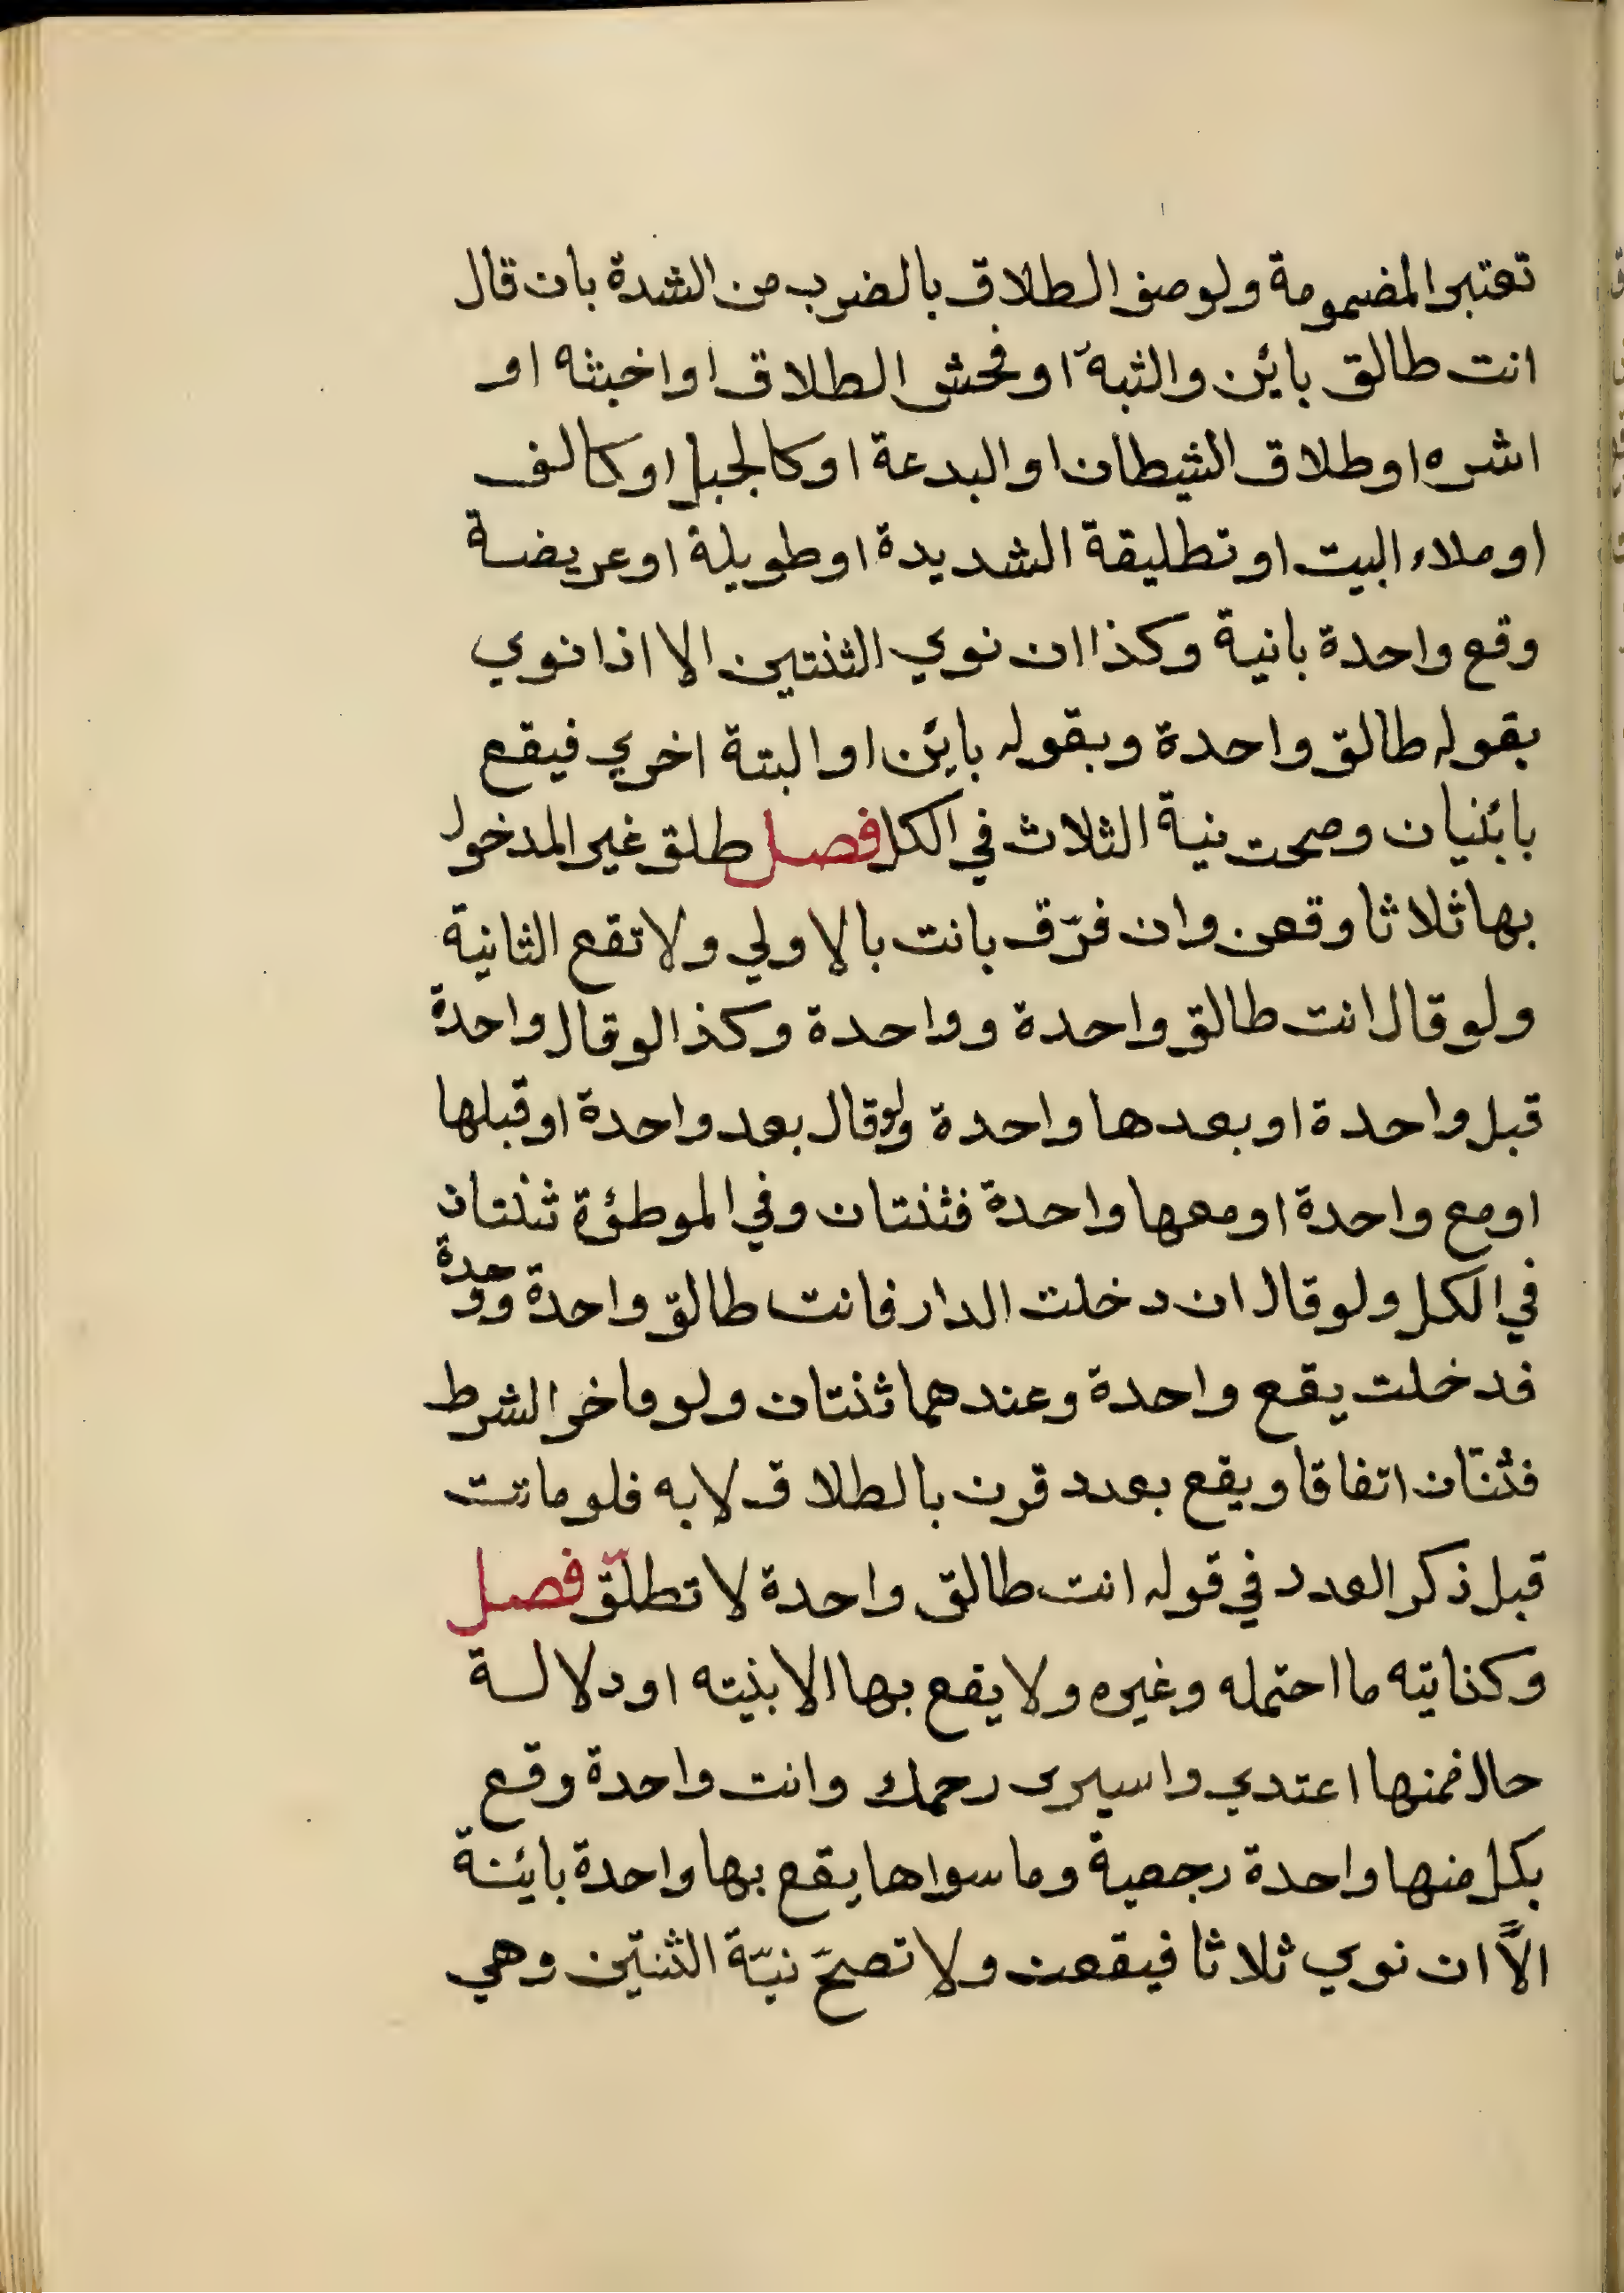 تعتبر المضمومة ولو صف الطلاق بالضرب من الشدة بان قال
انت طالق بائن والثبة او فحش الطلاق او اخبثه او
اشره او طلاق الشيطان او البدعة او كالجبل او كالف
او ملاء البيت او تطليقة الشديدة او طويلة او عريضة
وقع واحدة بانية وكذا ان نوي الثنتين الا اذا نوي
بقوله طالق واحدة وبقوله بائن او البتة اخري فيقع
بائنيان وصحت نية الثلاث في الكل فصل طلق غير المدخول
بها ثلاثا وقعن وان فرّق بانت بالاولي ولا تقع الثانية
ولو قال انت طالق واحدة وواحدة وكذا لو قال واحدة
قبل واحدة او بعدها واحدة ولو قال بعد واحدة او قبلها
او مع واحدة او معها واحدة فثنتان وفي الموطؤة ثنتان
في الكل ولو قال ان دخلت الدار فانت طالق واحدة ووحدة
فدخلت يقع واحدة وعندهما ثنتان ولو واخر الشرط
فثنتان اتفاقا ويقع بعدد قرن بالطلاق لا به فلو ماتت
قبل ذكر العدد في قوله انت طالق واحدة لا تطلّق فصل
وكنايته ما احتمله وغيره ولا يقع بها الا بنيته او دلالة
حال فمنها اعتدي واسيرى رحمك وانت واحدة وقع
بكل منها واحدة رجعية وما سواها يقع بها واحدة بائنة
الاّ ان نوي ثلاثا فيقعن ولا تصحّ نيّة الثنتين وهي